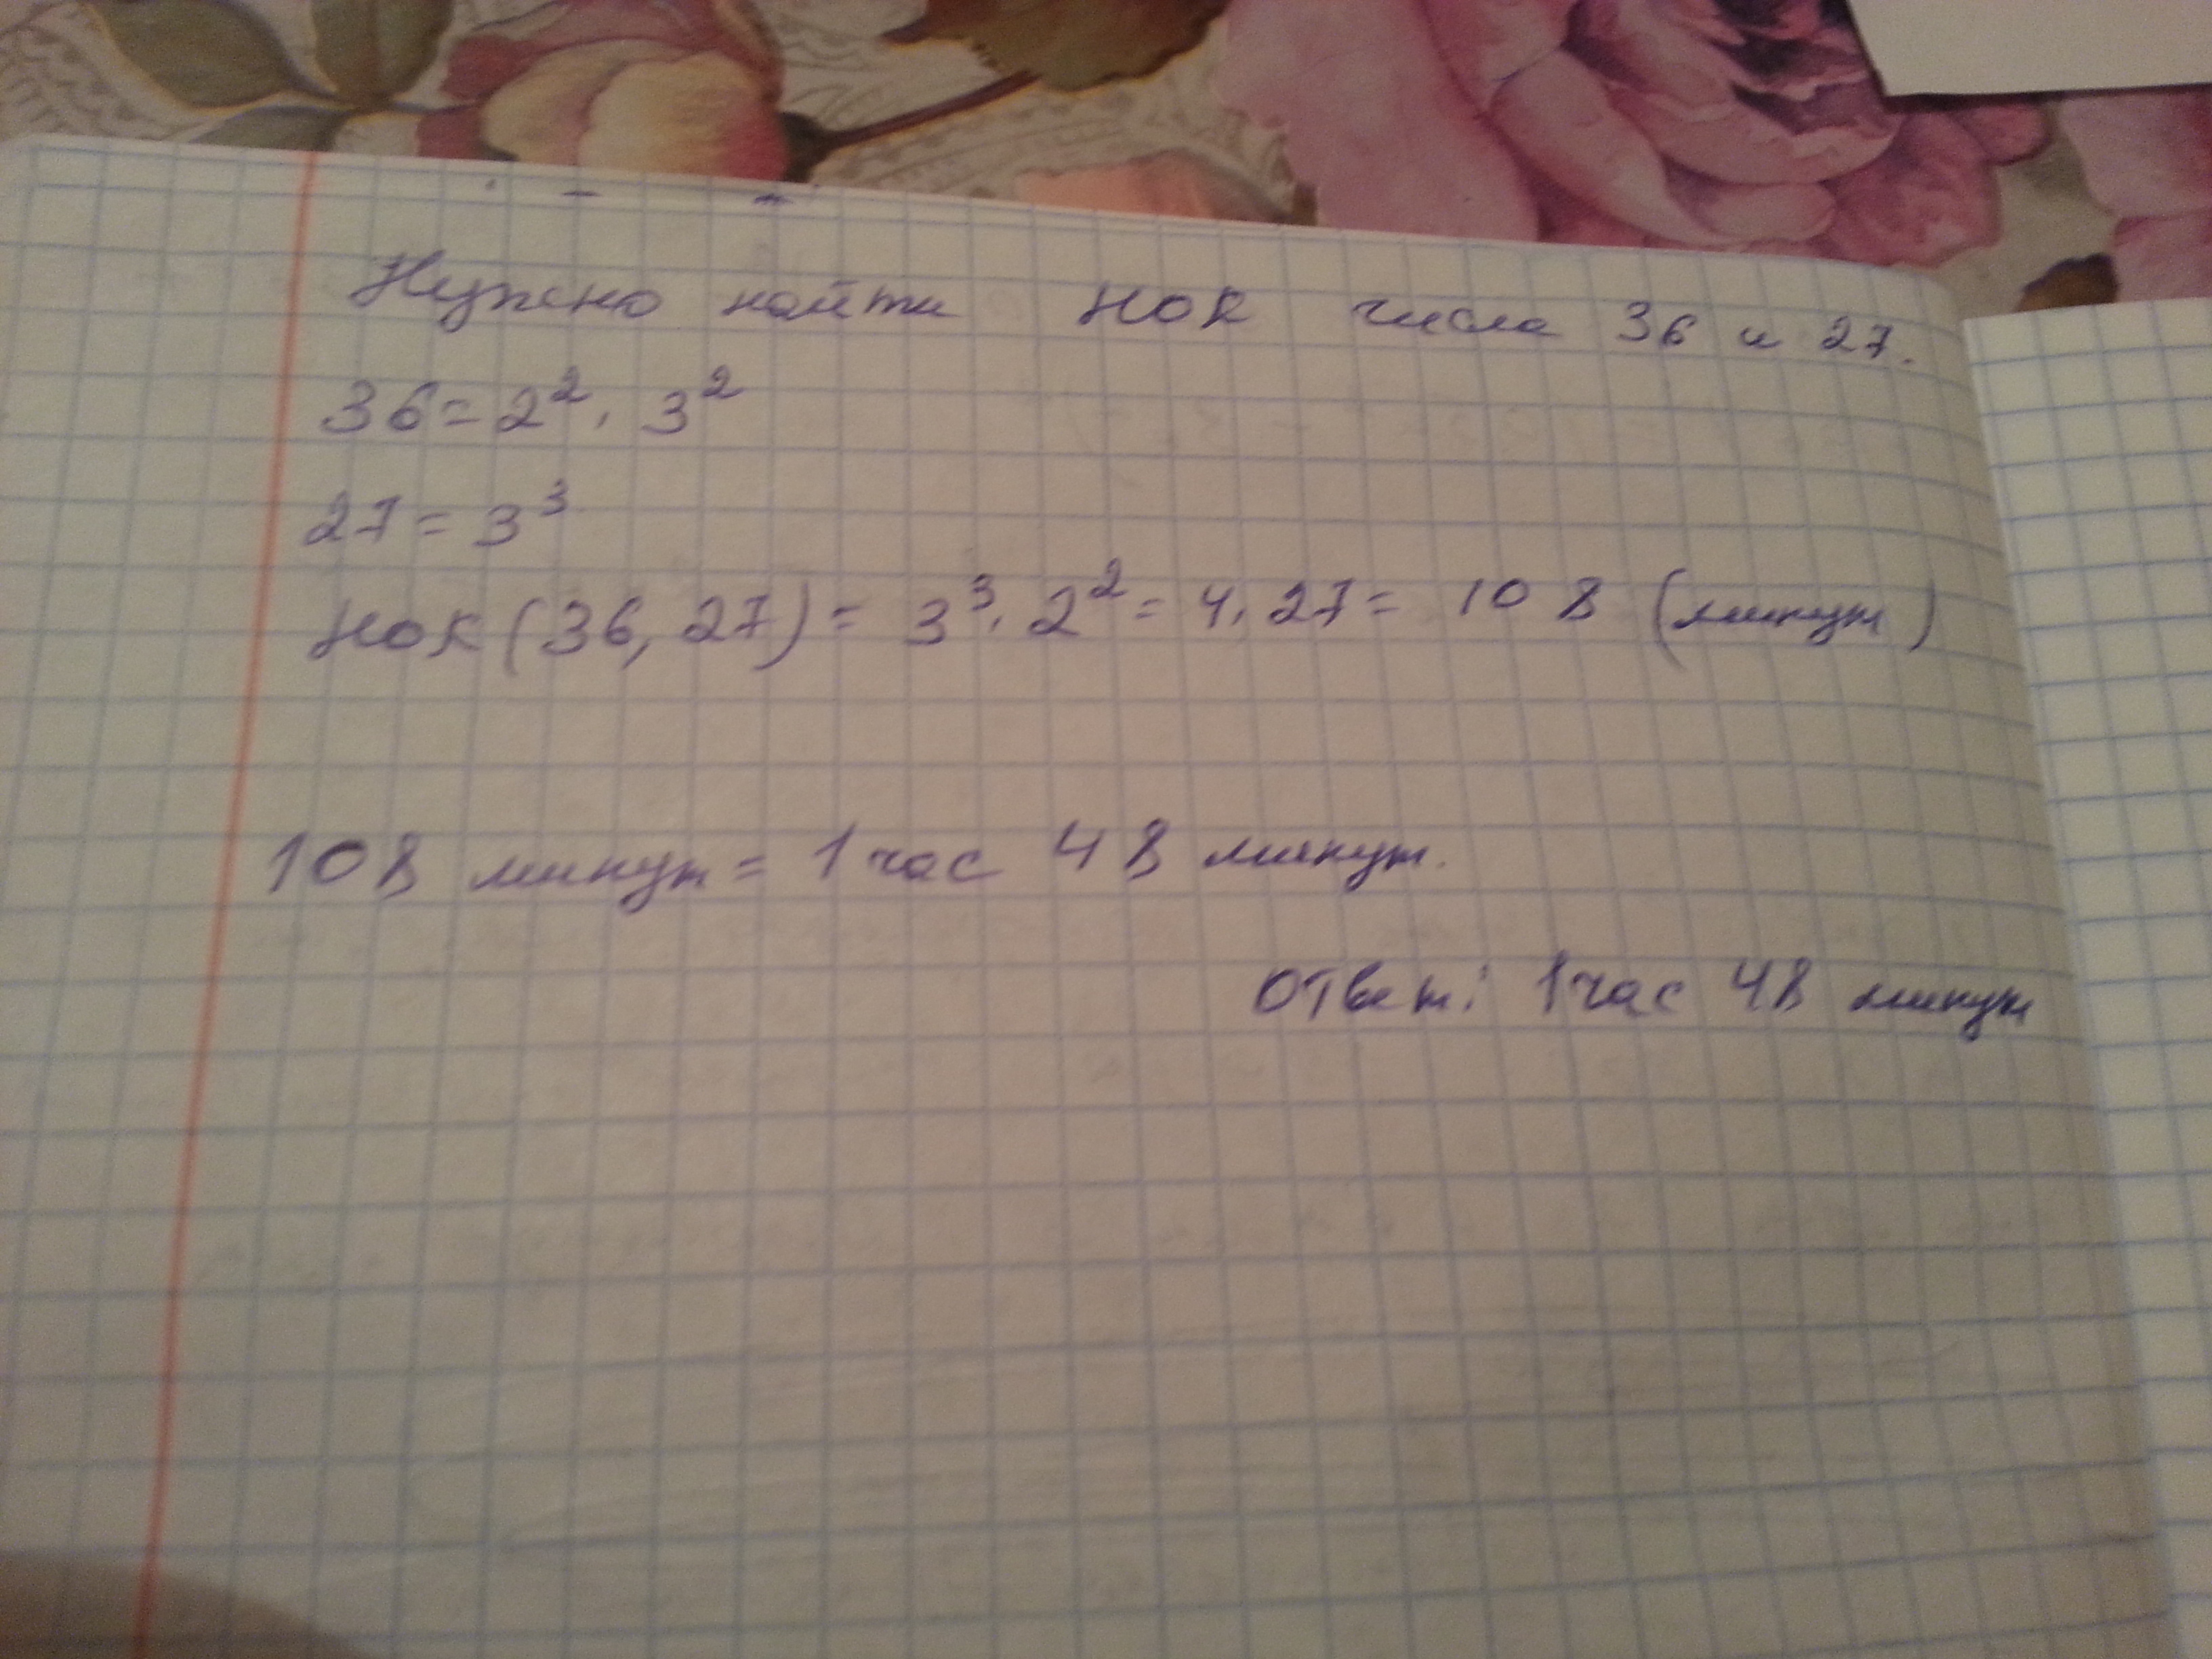 Нужно найти НОК числа 36 и 27.
36 = 2² · 3²
27 = 3³
НОК (36, 27) = 3³ · 2² = 4 · 27 = 108 (минут)
108 минут = 1 час 48 минут.
Ответ: 1 час 48 минут